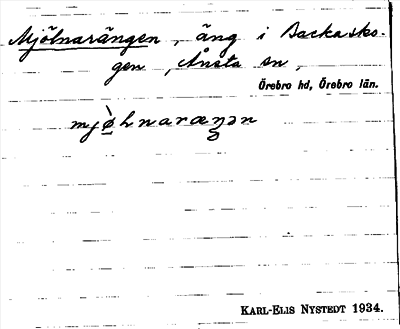 Mjölnarängen, äng i Backasko-
gen, Ånsta sn,
Örebro hd, Örebro län.
mjø̀lnaræŋən
KARL-ELIS NYSTEDT 1934.